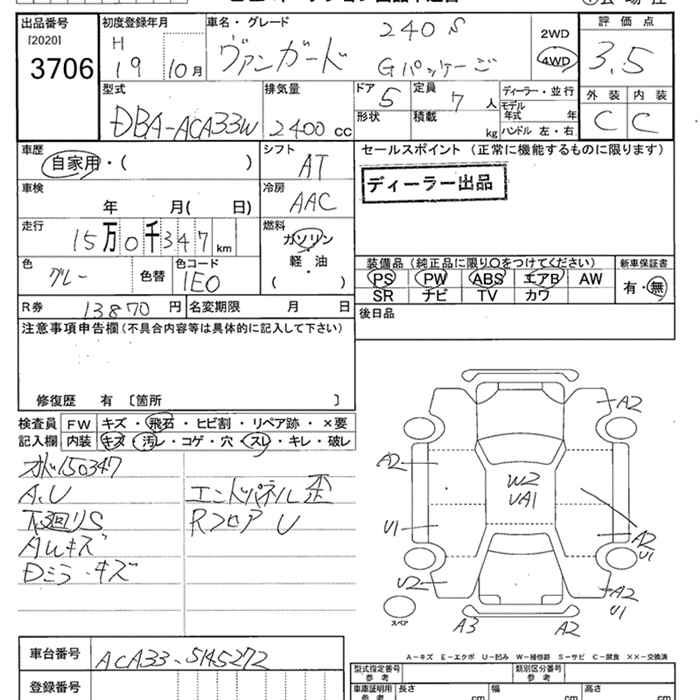 出品番号
[2020]
3706
初度登録年月
H
19 10月
車名・グレード
240 S
ヴァンガード Gパッケージ
2WD
4WD
評価点
3.5
型式
DBA-ACA33W
排気量
2400 cc
ドア 5
形状
定員 7 人
積載 kg
ディーラー・並行
モデル年式 年
ハンドル 左・右
外装 内装
C C
車歴
自家用・( )
シフト
AT
セールスポイント (正常に機能するものに限ります)
ディーラー出品
車検
年 月( 日)
冷房
AAC
走行
15万0千347 km
燃料
ガソリン
軽・油
( ・ )
色
グレー
色替
色コード
1E0
装備品(純正品に限り○をつけてください)
PS PW ABS エアB AW
SR ナビ TV カワ
新車保証書
有・無
R券 13870 円
名変期限 月 日
後日品
注意事項申告欄(不具合内容等は具体的に記入して下さい)
修復歴 有 〔箇所 〕
検査員記入欄
FW キズ・飛石・ヒビ割・リペア跡・×要
内装 キズ・汚レ・コゲ・穴・スレ・キレ・破レ
150347
A.U
下廻りS
AWキズ
Dミラーキズ
エンドパネル歪
RフロアU
A2
A2
W2
UA1
U1
A2
U1
U2
A2
U1
A3
A2
スペア
A-キズ E-エクボ U-凹み W-補修跡 S-サビ C-腐食 XX-交換済
車台番号 ACA33-5145272
登録番号
型式指定番号
参考
類別区分番号
参考
車庫証明用
参考
長さ cm
幅 cm
高さ cm